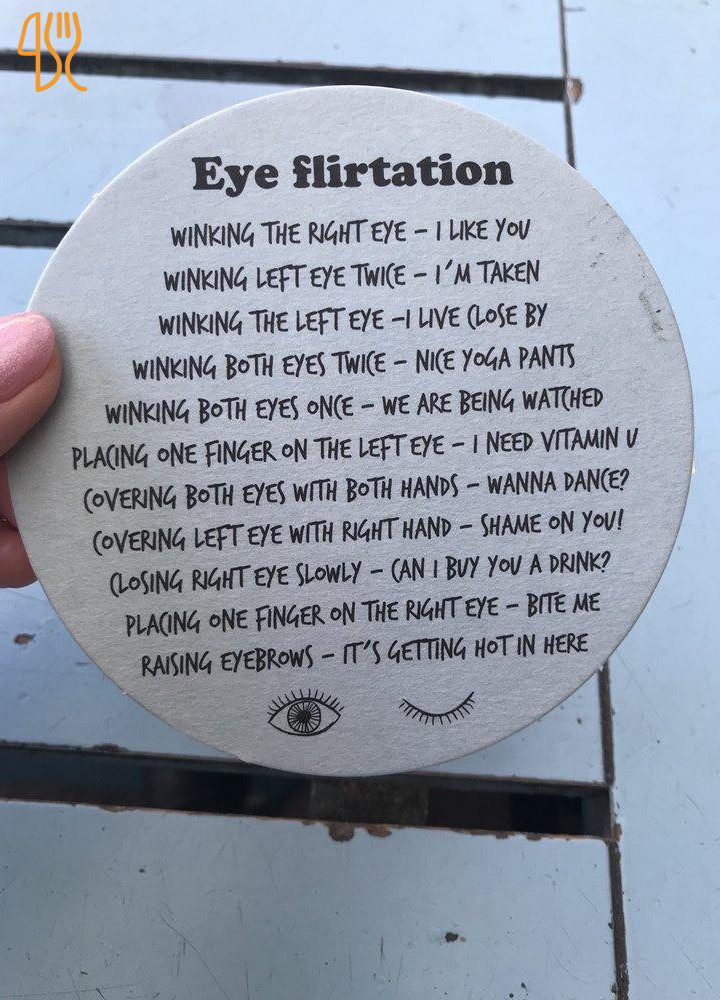 Eye flirtation
WINKING THE RIGHT EYE – I LIKE YOU
WINKING LEFT EYE TWICE – I'M TAKEN
WINKING THE LEFT EYE –I LIVE CLOSE BY
WINKING BOTH EYES TWICE – NICE YOGA PANTS
WINKING BOTH EYES ONCE – WE ARE BEING WATCHED
PLACING ONE FINGER ON THE LEFT EYE – I NEED VITAMIN U
COVERING BOTH EYES WITH BOTH HANDS – WANNA DANCE?
COVERING LEFT EYE WITH RIGHT HAND – SHAME ON YOU!
CLOSING RIGHT EYE SLOWLY – CAN I BUY YOU A DRINK?
PLACING ONE FINGER ON THE RIGHT EYE – BITE ME
RAISING EYEBROWS – IT'S GETTING HOT IN HERE